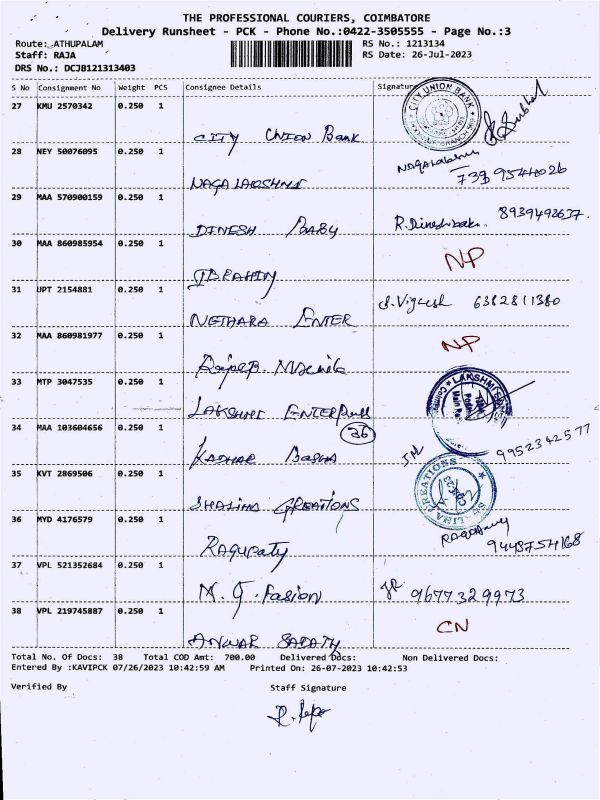 THE PROFESSIONAL COURIERS, COIMBATORE
Delivery Runsheet - PCK - Phone No.:0422-3505555 - Page No.:3
Route: ATHUPALAM RS No.: 1213134
Staff: RAJA RS Date: 26-Jul-2023
DRS No.: DCJB121313403
S No Consignment No Weight PCS Consignee Details Signature
27 KMU 2570342 0.250 1
CITY UNION BANK
CITY Union Bank
28 NEY 50076095 0.250 1
NAGALAKSHMI
29 MAA 570900159 0.250 1
DINESH BABY R. Dineshbabu 8939492637
30 MAA 860985954 0.250 1 NP
IBRAHIM
31 UPT 2154881 0.250 1 S. Vignesh 6382811380
NETHARA ENTER
32 MAA 860981977 0.250 1 NP
33 MTP 3047535 0.250 1
LAKSHMI
LAKSHMI ENTERPRISES
36
34 MAA 103604656 0.250 1 9952342577
KADHAR BASHA
35 KVT 2869506 0.250 1
CREATIONS
SHALIHA CREATIONS
36 MYD 4176579 0.250 1
RAGUPATY 9443754168
37 VPL 521352684 0.250 1
M. G. Fasion 9677329973
38 VPL 219745887 0.250 1 CN
ANWAR SADATY
Total No. Of Docs: 38 Total COD Amt: 700.00 Delivered Docs: Non Delivered Docs:
Entered By :KAVIPCK 07/26/2023 10:42:59 AM Printed On: 26-07-2023 10:42:53
Verified By Staff Signature